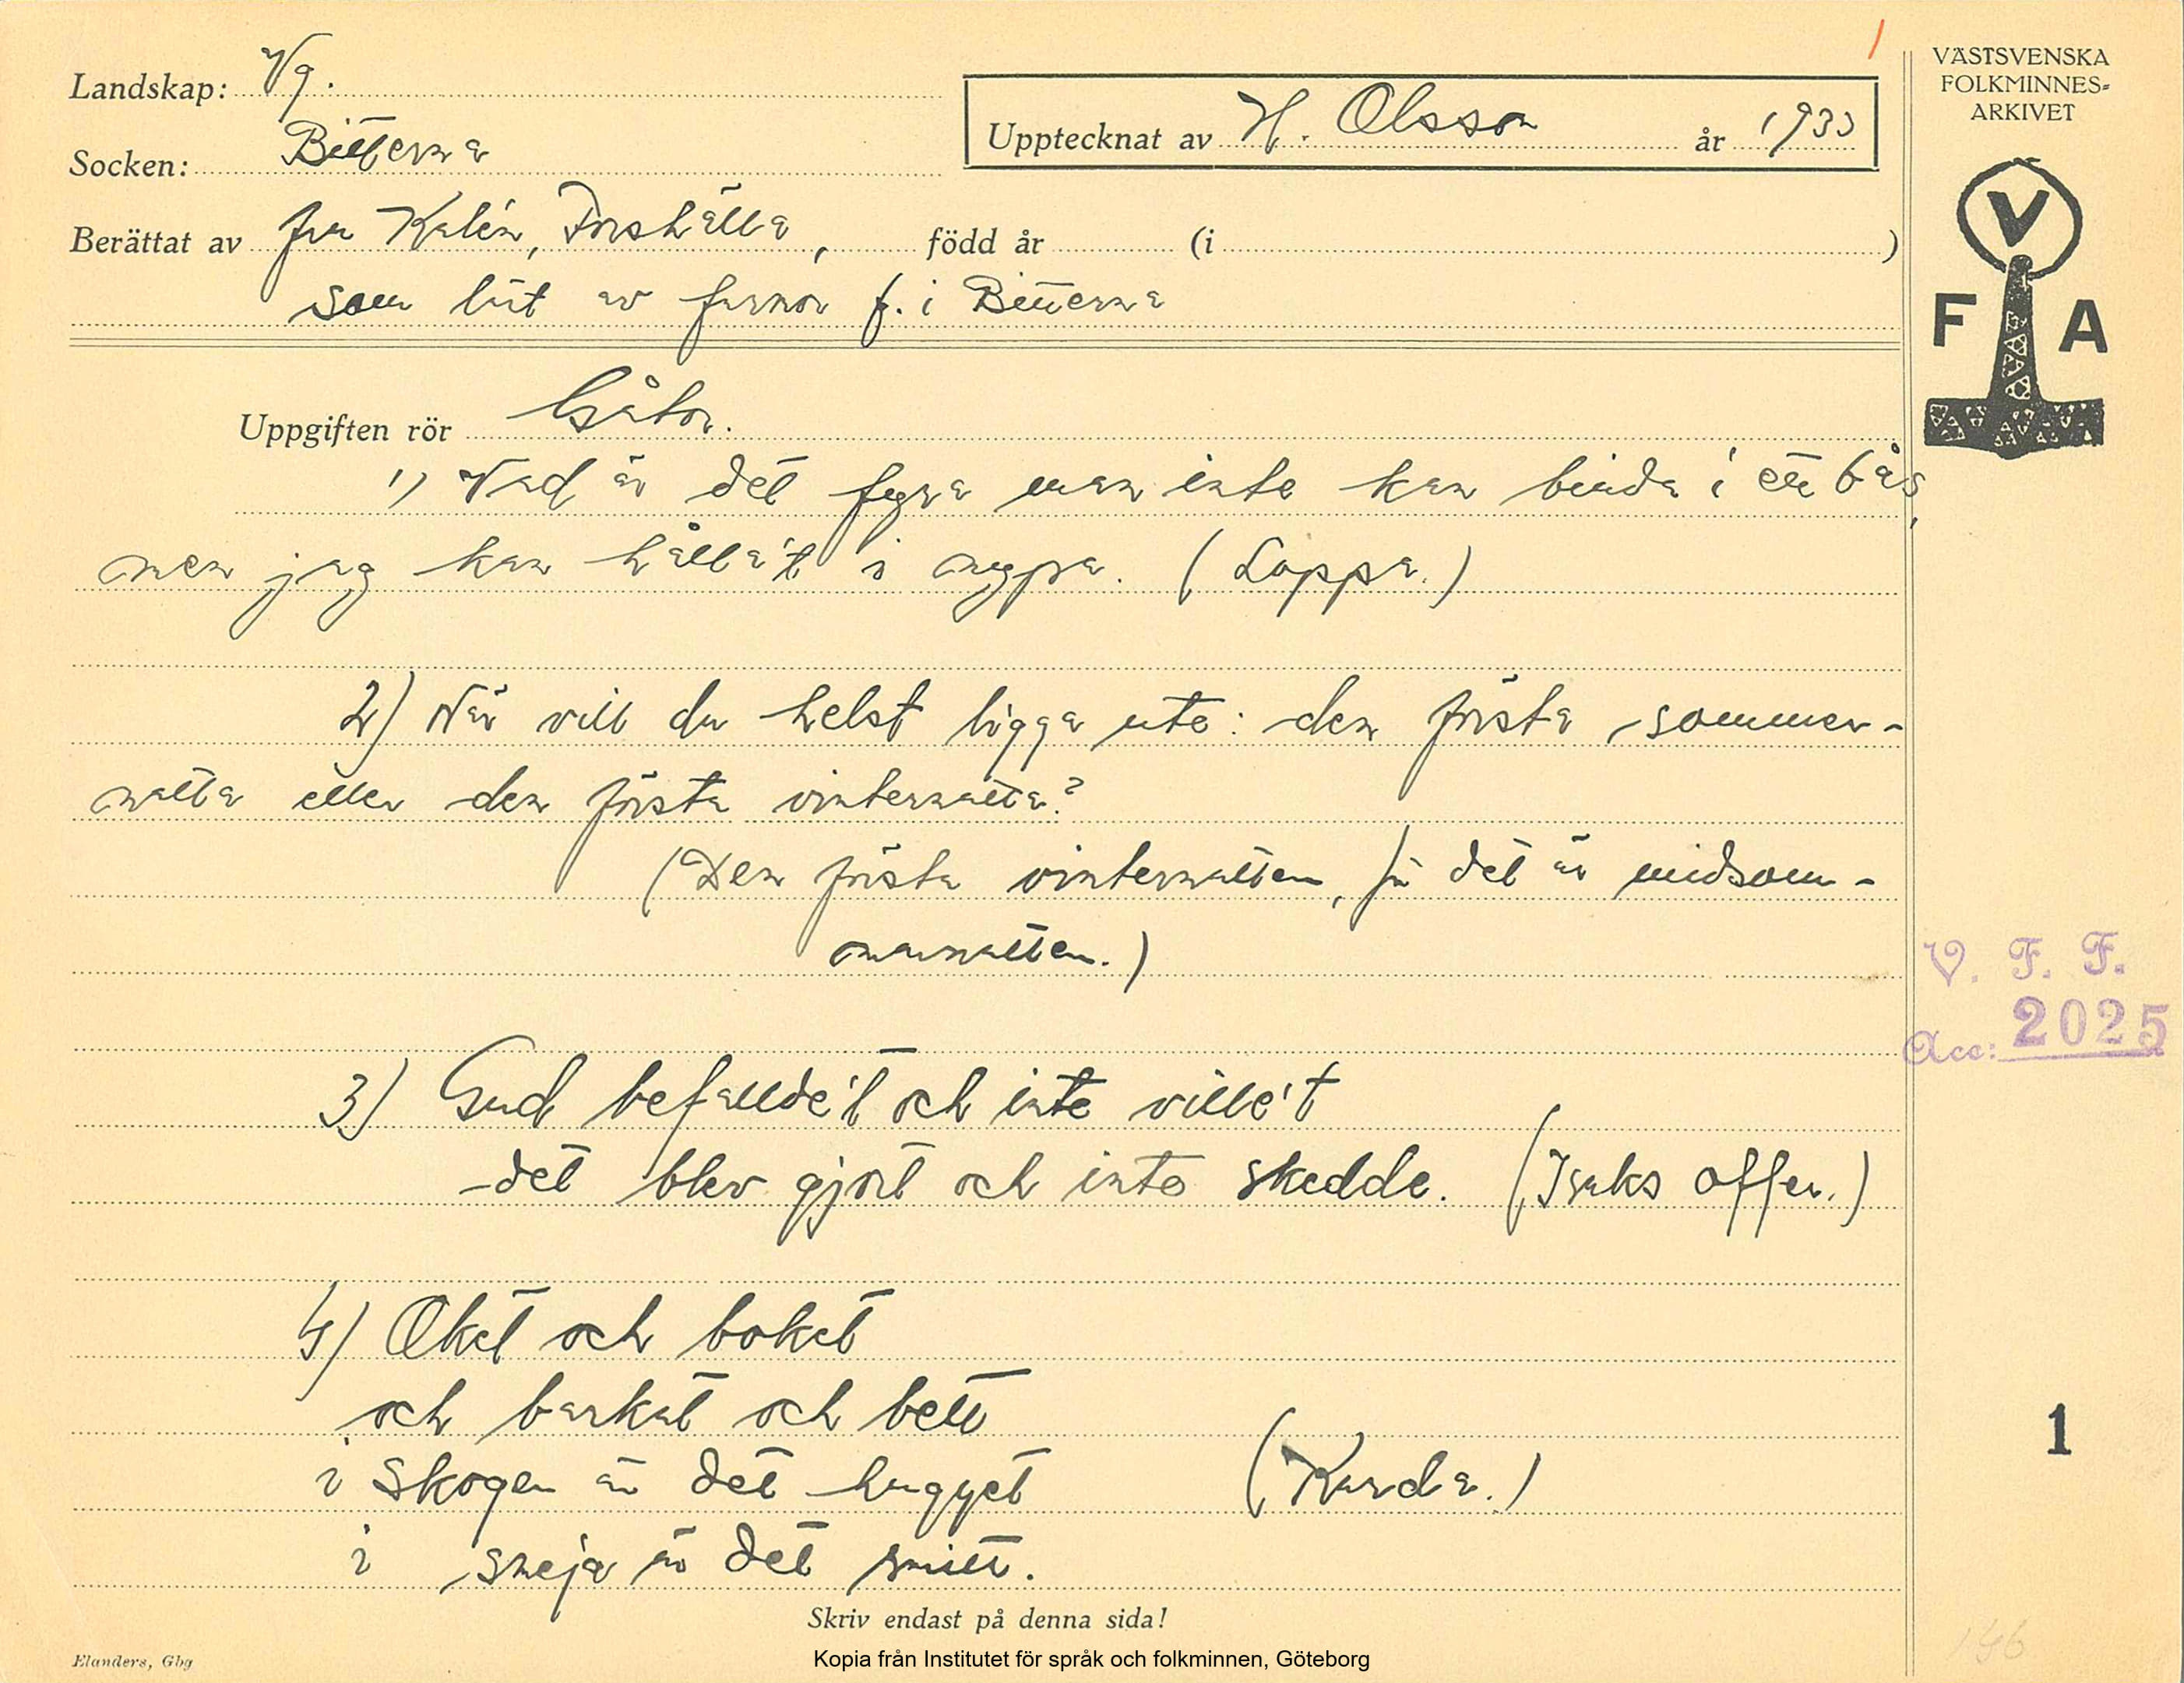 Landskap: Vg.
Socken: Bitterna
Upptecknat av H. Olsson år 1933
Berättat av fru Kalén, Forshälla, född år (i )
som lärt av farmor f. i Bitterna
VÄSTSVENSKA
FOLKMINNES-
ARKIVET
V
F A
Uppgiften rör Gåtor.
1) Vad är det fyra man inte kan binda i ett bås,
men jag kan hålla't i nypa. (Loppa.)
2) När vill du helst ligga ute: den första sommer-
natta eller den första vinternatta?
(Den första vinternatten, för det är midsom-
marnatten.)
V. F. F.
Acc: 2025
3) Gud befallde't och inte ville't
det blev gjort och inte skedde. (Isaks offer.)
4) Oket och boket
och barkat och bett
i skogen är det hugget
i smeja är det smitt.
(Karda.)
1
Skriv endast på denna sida!
Elanders, Gbg
Kopia från Institutet för språk och folkminnen, Göteborg
146